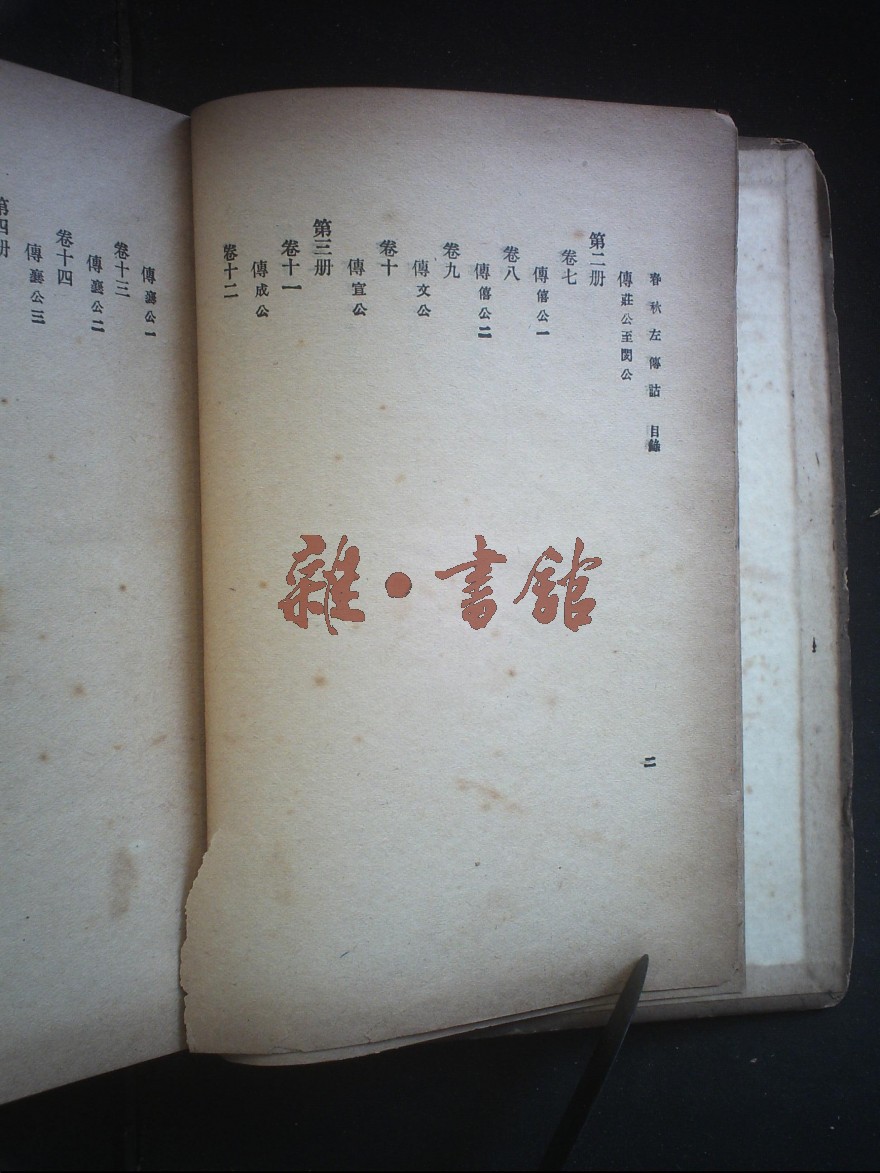 春秋左傳詁 目錄
傳莊公至閔公
第二册
卷七
傳僖公一
卷八
傳僖公二
卷九
傳文公
卷十
傳宣公
第三册
卷十一
傳成公
卷十二
傳襄公一
卷十三
傳襄公二
卷十四
傳襄公三
第四册
二
雜·書館